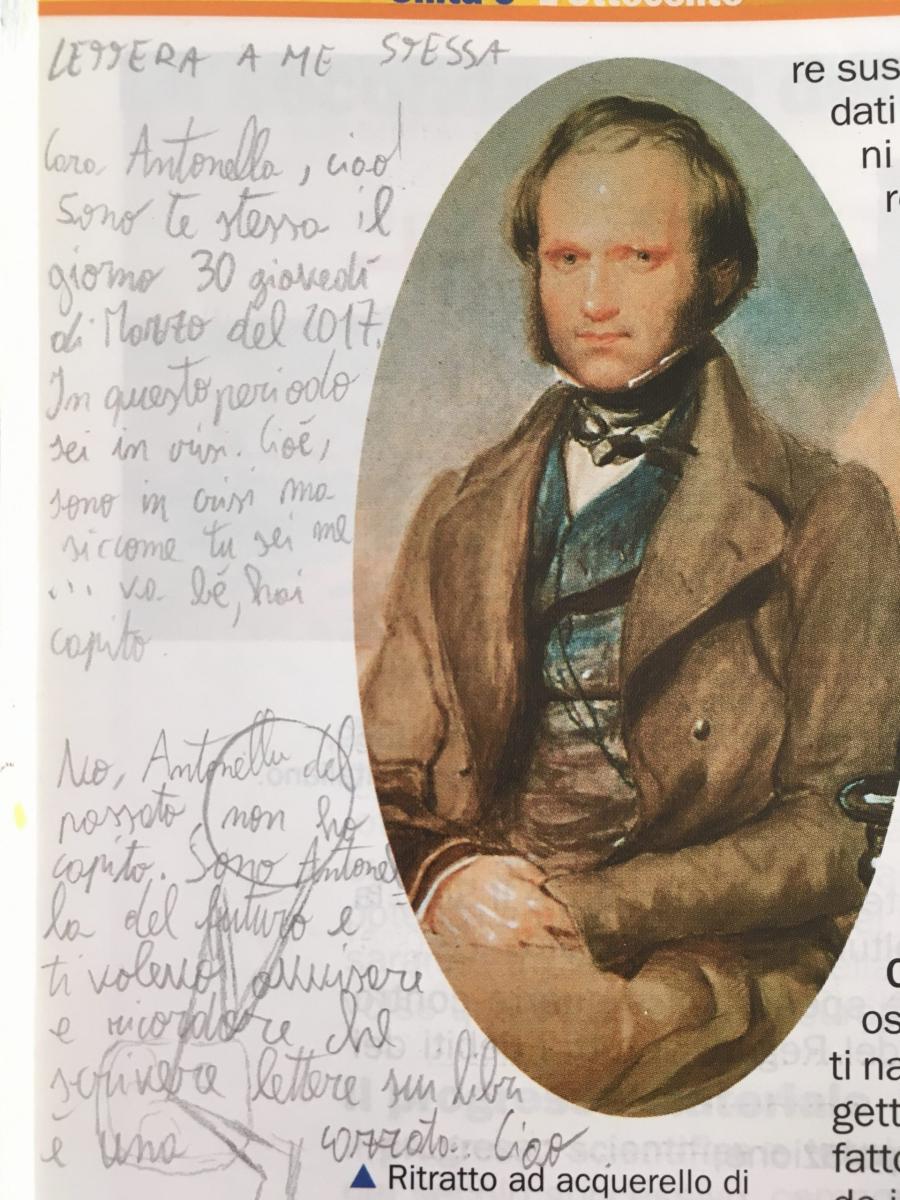 Unità 8 L'Ottocento
LETTERA A ME STESSA
Cara Antonella, ciao!
Sono te stessa il
giorno 30 giovedì
di Marzo del 2017.
In questo periodo
sei in crisi. Cioè,
sono in crisi ma
siccome tu sei me
... va bé, hai
capito.
No, Antonella del
passato, non ho
capito. Sono Antonel
la del futuro e
ti volevo avvisare
e ricordare che
scrivere lettere sui libri
è una cazzata.. Ciao.
re sus
dati
ni
os
ti na
gett
fatto
▲ Ritratto ad acquerello di